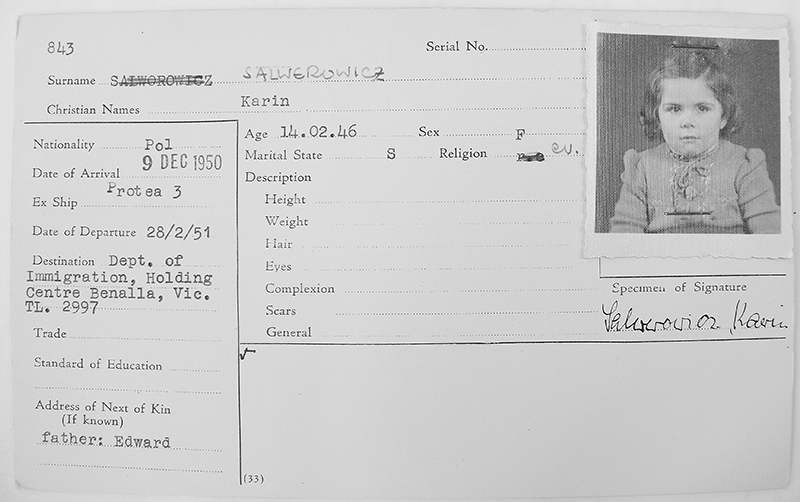 843
Serial No.
Surname SALWOROWICZ SALWEROWICZ
Christian Names Karin
Nationality Pol
Date of Arrival 9 DEC 1950
Ex Ship Protea 3
Date of Departure 28/2/51
Destination Dept. of
Immigration, Holding
Centre Benalla, Vic.
TL. 2997
Trade
Standard of Education
Address of Next of Kin
(If known)
father: Edward
Age 14.02.46 Sex F
Marital State S Religion ev.
Description
Height
Weight
Hair
Eyes
Complexion
Scars
General
(33)
Specimen of Signature
Salwerowicz Karin